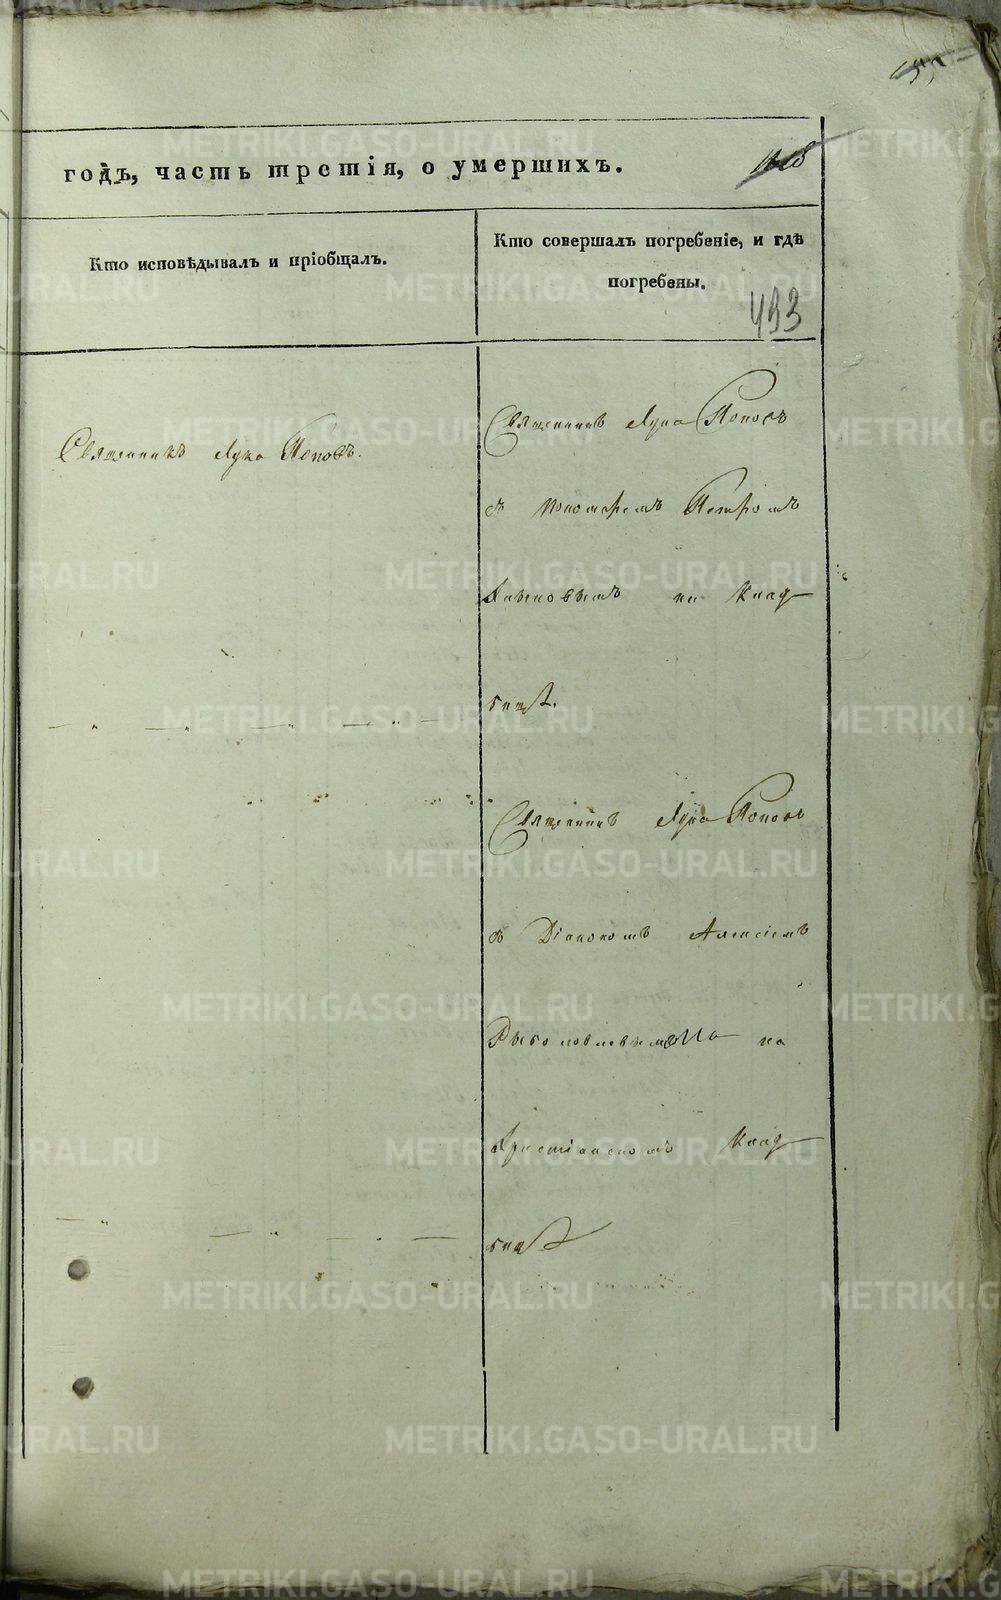 годъ, часть третія, о умершихъ.
Кто исповѣдывалъ и пріобщалъ.
Кто совершалъ погребеніе, и гдѣ
погребены.
493
Священникъ Лука Поповъ.
Священникъ Лука Поповъ
съ пономаремъ Петромъ
на Клад-
бищѣ.
Священникъ Лука Поповъ
съ Діакономъ Алексіемъ
на
Христіанскомъ Клад-
бищѣ
METRIKI.GASO-URAL.RU